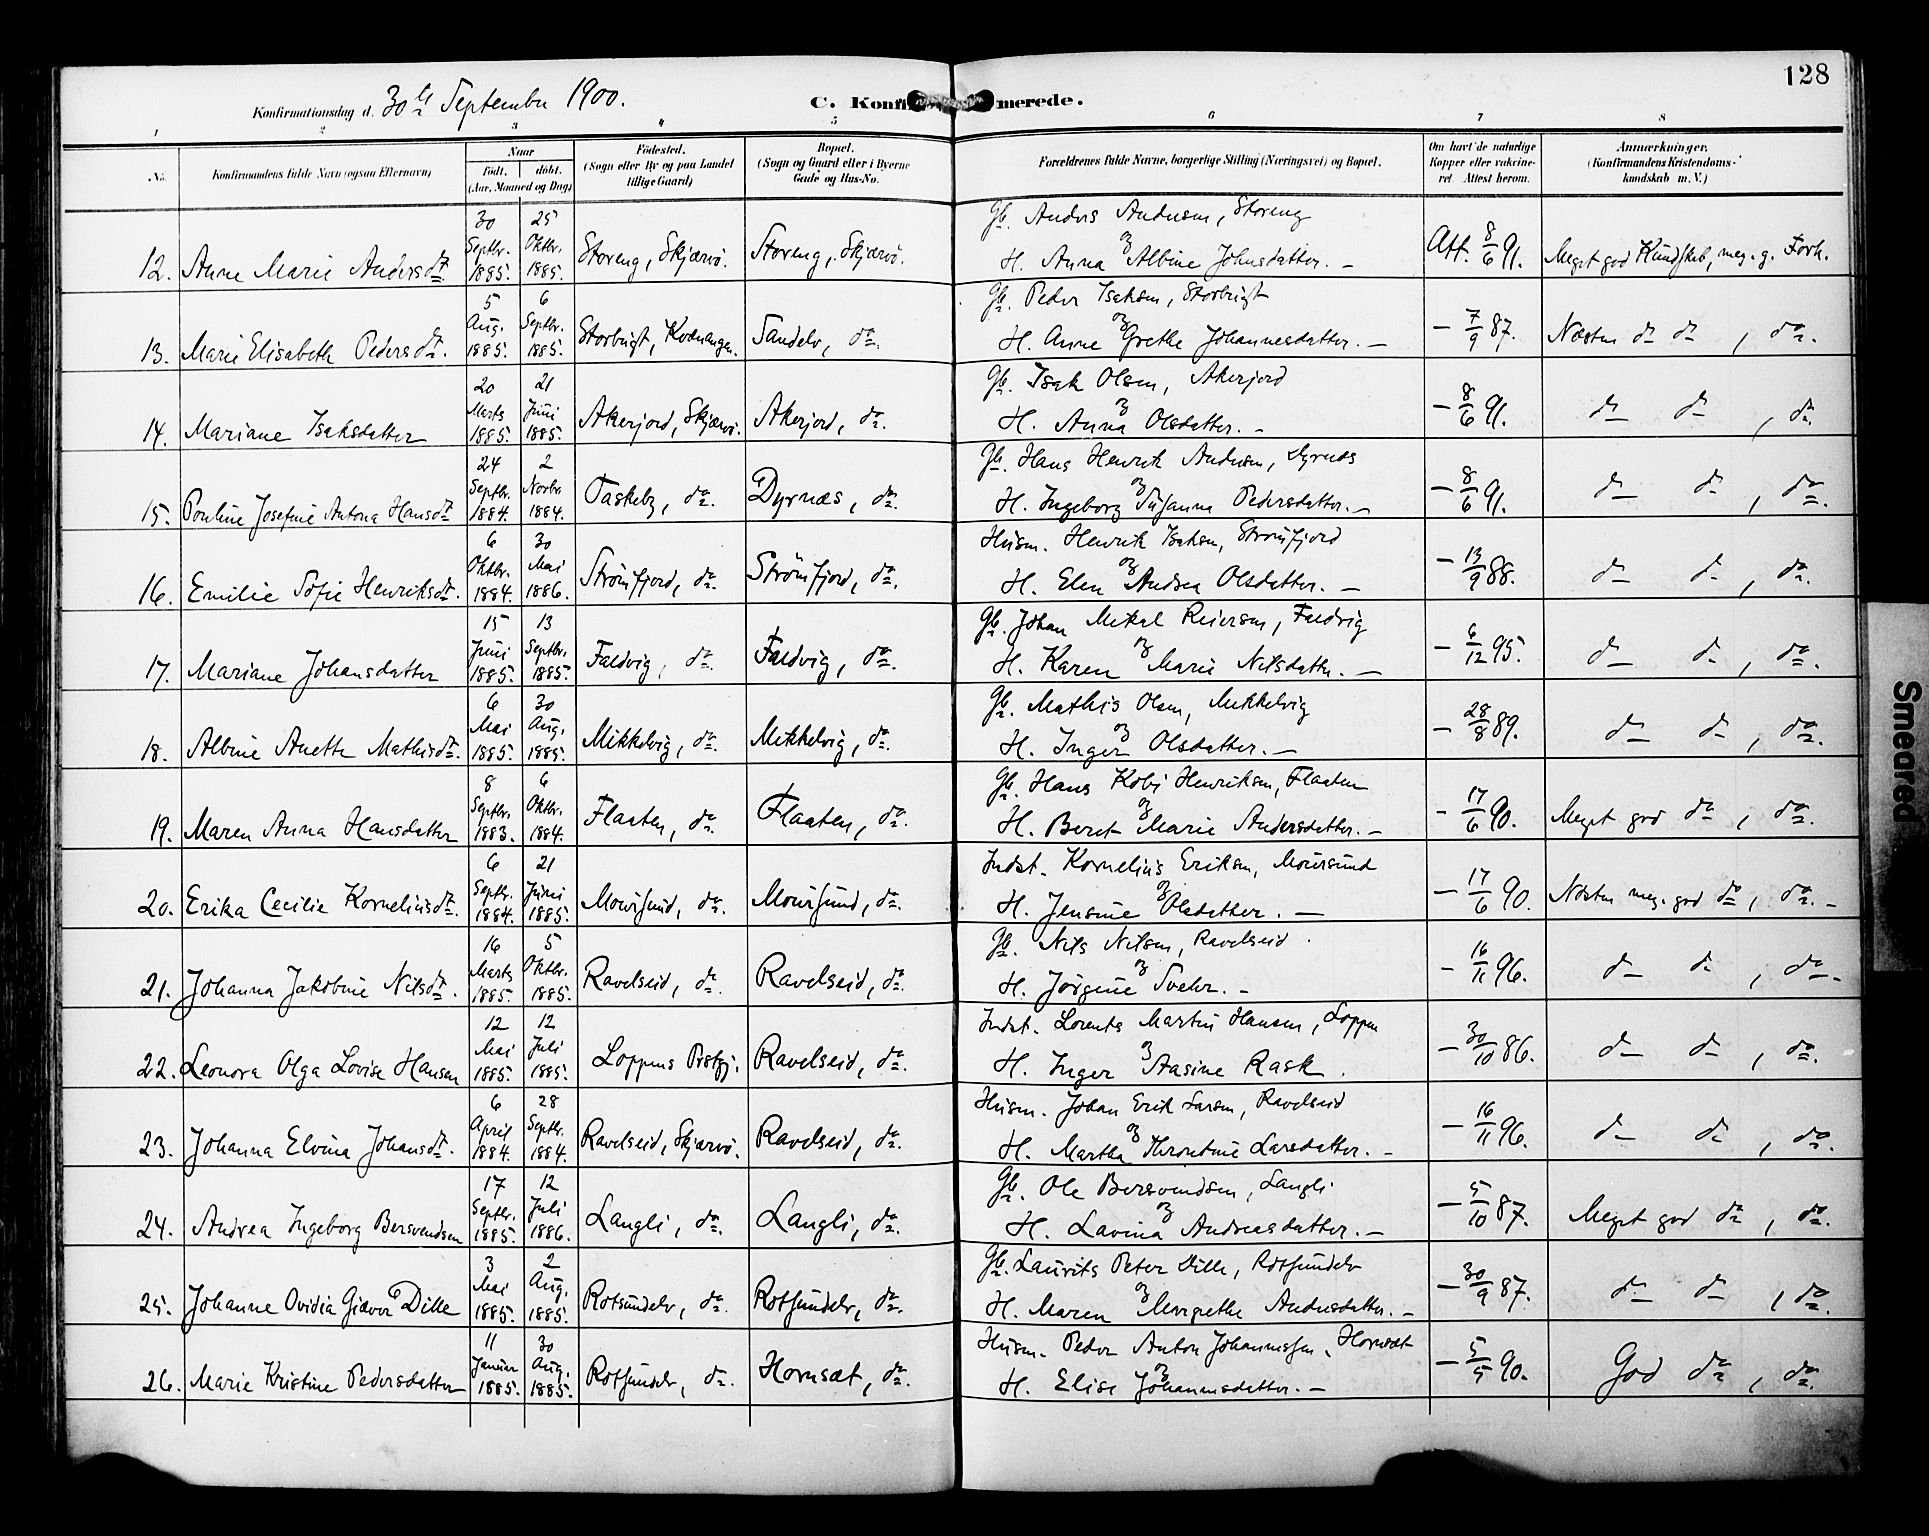 128
Konfirmationsdag d. 30te September 1900.
C. Konfirmerede.
1 2 3 4 5 6 7 8
No.
Konfirmandens fulde Navn (ogsaa Efternavn)
Naar
Født. døbt.
(Aar, Maaned og Dag)
Fødested.
(Sogn eller By og paa Landet
tillige Gaard)
Bopæl.
(Sogn og Gaard eller i Byerne
Gade og Hus-No.
Forældrenes fulde Navne, borgerlige Stilling (Næringsvei) og Bopæl.
Om havt de naturlige
Kopper eller vakcine-
ret. Attest herom.
Anmærkninger.
(Konfirmandens Kristendoms-
kundskab m. V.)
12. Anne Marie Andersdt. 30 Septbr. 1885. 25 Oktbr. 1885. Storeng, Skjærvö. Storeng, Skjærvö.
Gb. Anders Andersen, Storeng
og
H. Anna Albine Johnsdatter. — Att. 8/6 91. Meget god Kundskab, meg. g. Forh.
13. Marie Elisabeth Pedersdt. 5 Aug. 1885. 6 Septbr. 1885. Storbugt, Kvænangen. Sandelv, do.
Gb. Peder Isaksen, Storbugt
og
H. Anne Grethe Johannesdatter. — — 7/9 87. Næsten do do, do.
14. Mariane Isaksdatter 20 Marts 1885. 21 Juni 1885. Akerjord, Skjærvö. Akerjord, do.
Gb. Isak Olsen, Akerjord
og
H. Anna Olsdatter. — — 8/6 91. do do, do
15. Pouline Josefine Antona Hansdt. 24 Septbr. 1884. 2 Novbr. 1884. Taskeby, do. Dyrnæs, do.
Gb. Hans Henrik Andersen, Dyrnæs
og
H. Ingeborg Susanna Pedersdatter. — — 8/6 91. do do, do.
16. Emilie Sofie Henriksdt. 6 Oktbr. 1884. 30 Mai 1886. Strömfjord, do. Strömfjord, do.
Husm. Henrik Isaksen, Strömfjord
og
H. Elen Andrea Olsdatter. — — 13/9 88. do do, do.
17. Mariane Johansdatter 15 Juni 1885. 13 Septbr. 1885. Faldvig, do. Faldvig, do.
Gb. Johan Mikal Reiersen, Faldvig
og
H. Karen Marie Nilsdatter. — — 6/12 95. do do, do.
18. Albine Anette Mathisdt. 6 Mai 1885. 30 Aug. 1885. Mikkelvig, do. Mikkelvig, do.
Gb. Mathis Olsen, Mikkelvig
og
H. Inger Olsdatter. — — 28/8 89. do do, do.
19. Maren Anna Hansdatter 8 Septbr. 1883. 6 Oktbr. 1884. Flaaten, do. Flaaten, do.
Gb. Hans Henriksen, Flaaten
og
H. Beret Marie Andersdatter. — — 17/6 90. Meget god do, do.
20. Erika Cecilie Korneliusdt. 6 Septbr. 1884. 21 Juni 1885. Moursund, do. Moursund, do.
Indst. Kornelius Eriksen, Moursund
og
H. Jensine Olsdatter. — — 17/6 90. Næsten meg. god do, do. —
21. Johanna Jakobine Nilsdt. 16 Marts 1885. 5 Oktbr. 1885. Ravelseid, do. Ravelseid, do.
Gb. Nils Nilsen, Ravelseid.
og
H. Jörgine — — 16/11 96. do do, do.
22. Leonora Olga Lovise Hansen 12 Mai 1885. 12 Juli 1885. Loppens Prstgj. Ravelseid, do.
Indst. Lorents Martin Hansen, Loppen
og
H. Inger Aasine Rask. — 30/10 86. do do, do.
23. Johanna Elvina Johansdt. 6 April 1884. 28 Septbr. 1884. Ravelseid, Skjærvö. Ravelseid, do.
Husm. Johan Erik Larsen, Ravelseid
og
H. Martha Larsdatter. — — 16/11 96. do do, do.
24. Andrea Ingeborg Bersvendsen 17 Septbr. 1885. 12 Juli 1886. Langli, do. Langli, do.
Gb. Ole Bersvendsen, Langli
og
H. Lavina Andreasdatter. — — 5/10 87. Meget god do, do.
25. Johanne Ovidia Giæver Dille 3 Mai 1885. 2 Aug. 1885. Rotsundelv, do. Rotsundelv, do.
Gb. Laurits Peter Dille, Rotsundelv
og
H. Maren Margrethe Andersdatter. — — 30/9 87. do do, do.
26. Marie Kristine Pedersdatter 11 Januar 1885. 30 Aug. 1885. Rotsundelv, do. Hornsæt, do.
Husm. Peder Anton Johannessen, Hornsæt
og
H. Elise Johannesdatter. — — 5/5 90. God do, do.
Smeared